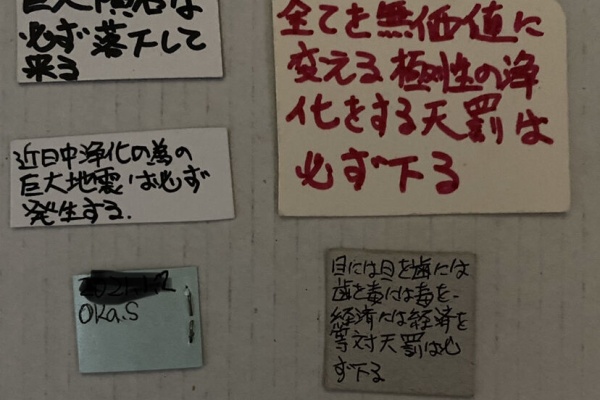 巨大隕石は
必ず落下して
来る
全てを無価値に
変える極刑性の浄
化をする天罰は
必ず下る
近日中浄化の為の
巨大地震は必ず
発生する.
OKa.S
目には目を歯には
歯を毒には毒を、
経済には経済を
等対天罰は必
ず下る